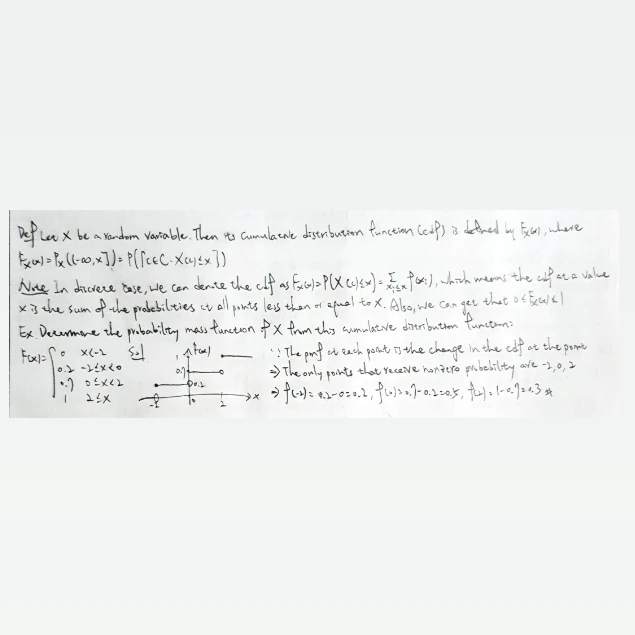 Def Let X be a random variable. Then its cumulative distribution function (cdf) is defined by Fx(x), where
Fx(x)=Px((-∞,x])=P({c∈C: X(c)≤x})
Note In discrete case, we can denote the cdf as Fx(x)=P(X(c)≤x)=Σ_{xi≤x} P(xi), which means the cdf at a value
x is the sum of the probabilities at all points less than or equal to X. Also, we can get that 0≤Fx(x)≤1
Ex Determine the probability mass function of X from this cumulative distribution function:
F(x)= { 0 x<-2
0.2 -2≤x<0
0.7 0≤x<2
1 2≤x
Sol
F(x)
1
0.7
0.2
-2 0 2 x
∵ The pmf at each point is the change in the cdf at the point
⇒ The only points that receive nonzero probability are -2, 0, 2
⇒ f(-2)=0.2-0=0.2, f(0)=0.7-0.2=0.5, f(2)=1-0.7=0.3 *